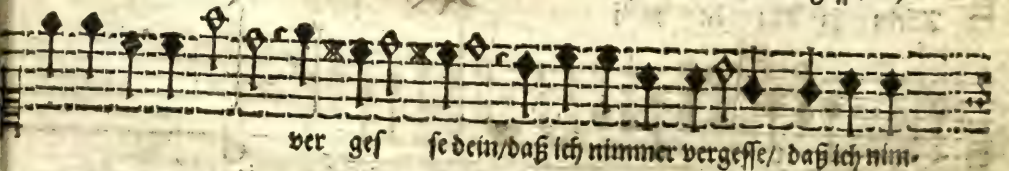 ver geſ ſe dein/daß ich nimmer vergeſſe/ daß ich nim-